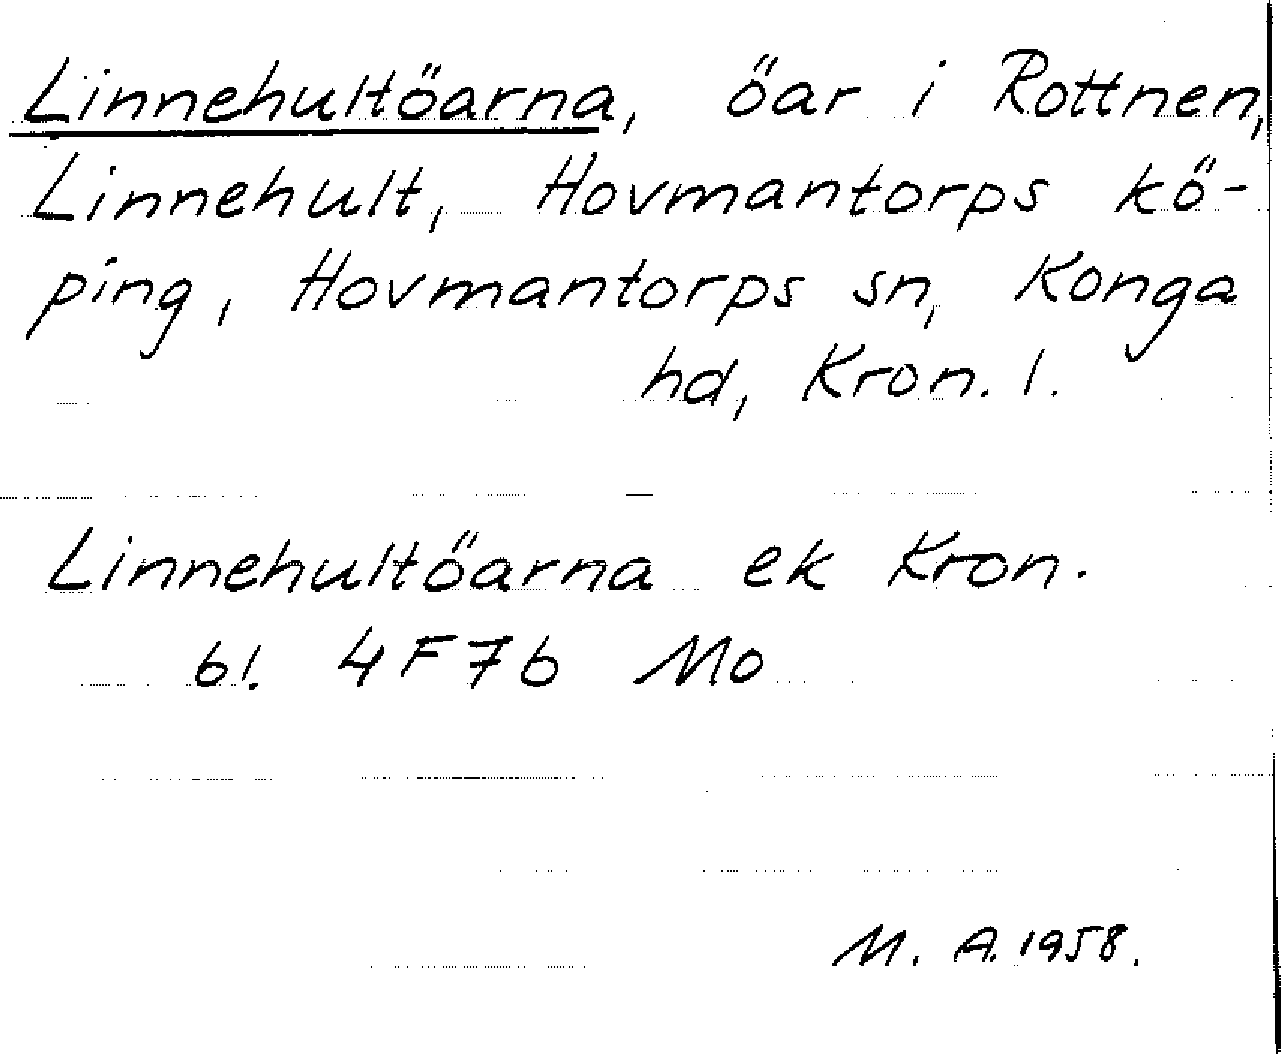 Linnehultöarna, öar i Rottnen,
Linnehult, Hovmantorps kö-
ping, Hovmantorps sn, Konga
hd, Kron. l.
Linnehultöarna ek Kron.
bl. 4F7b Mo
M. A. 1958.